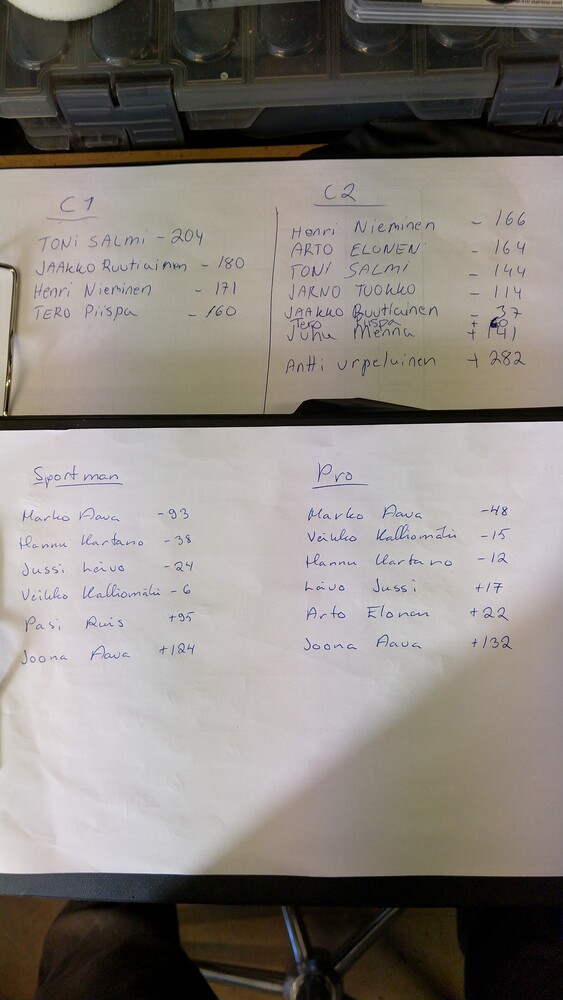 C1
TONI SALMI - 204
JAAKKO Ruutiainen - 180
Henri Nieminen - 171
TERO Piispa - 160
C2
Henri Nieminen - 166
ARTO ELONEN - 164
TONI SALMI - 144
JARNO TUOKKO - 114
JAAKKO Ruutiainen - 37
Tero Piispa +
Juha Menna + 141
Antti urpeluinen + 282
Sportman
Marko Aava - 93
Hannu Kartano - 38
Jussi Laivo - 24
Veikko Kalliomäki - 6
Pasi Ruis +95
Joona Aava +124
Pro
Marko Aava -48
Veikko Kalliomäki -15
Hannu Kartano -12
Laivo Jussi +17
Arto Elonan +22
Joona Aava +132